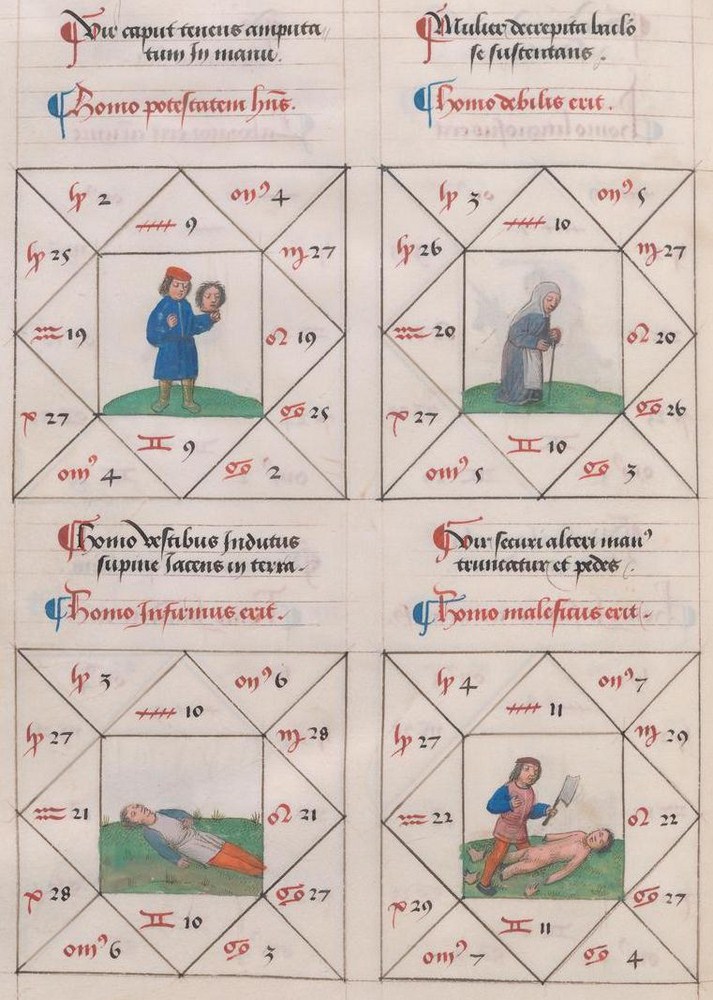 Vir caput tenens amputa
tum In manu.
Homo potestatem hns̄.
2
4
9
25
27
19
19
27
25
9
4
2
Mulier decrepita baclō
se sustentans.
Homo debilis erit.
3
5
10
26
27
20
20
27
26
10
5
3
Homo vestibus Indutus
supine Iacens in terra.
Homo Infirmus erit.
3
6
10
27
28
21
21
28
27
10
6
3
Vir securi alteri manꝰ
truncatur et pedes.
Homo maleficus erit.
4
7
11
27
29
22
22
29
27
11
7
4